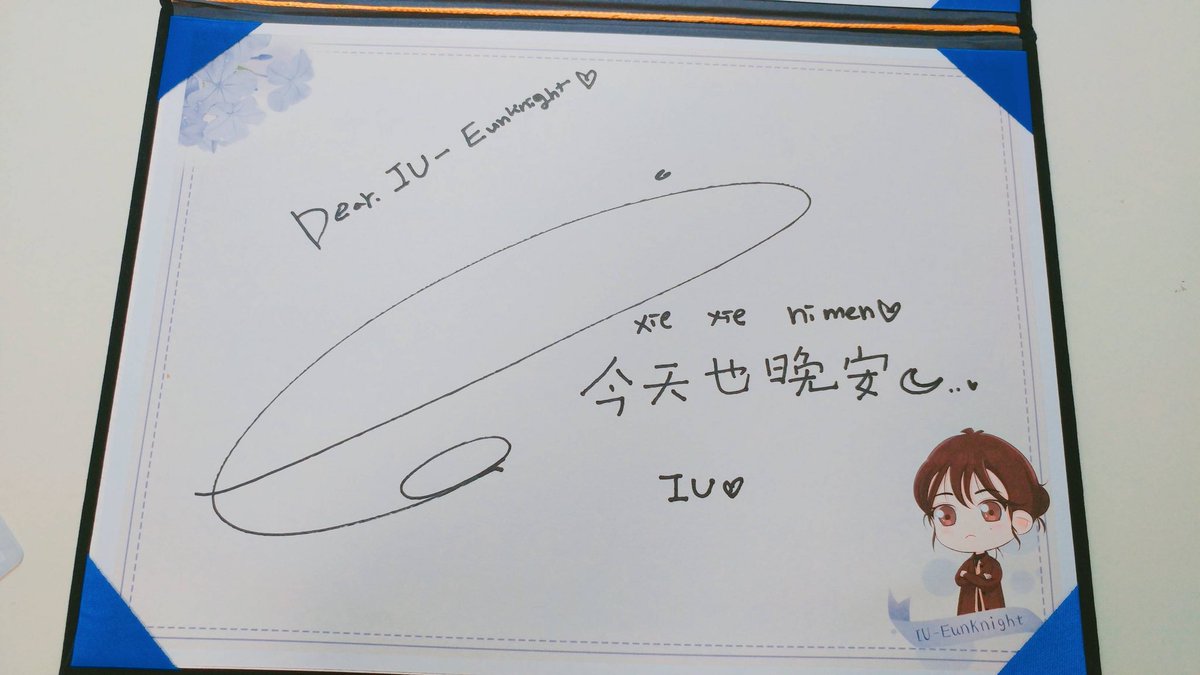 Dear. IU - EunKnight♡
xie xie ni men♡
今天也晚安☾..♥
IU♡
IU-EunKnight